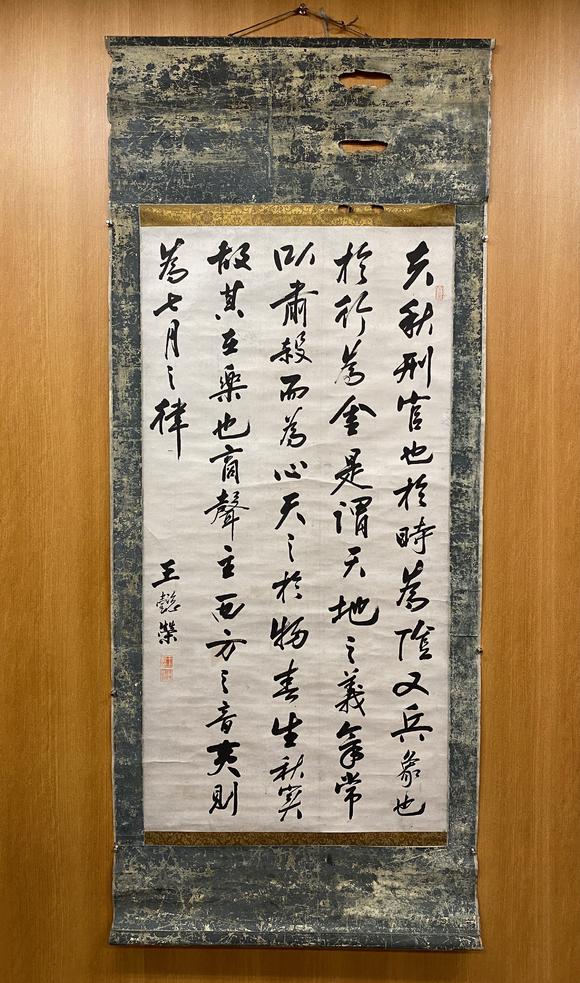 夫秋刑官也於時為陰又兵象也
於行為金是謂天地之義氣常
以肅殺而為心天之於物春生秋實
故其在樂也商聲主西方之音夷則
為七月之律
王懿榮